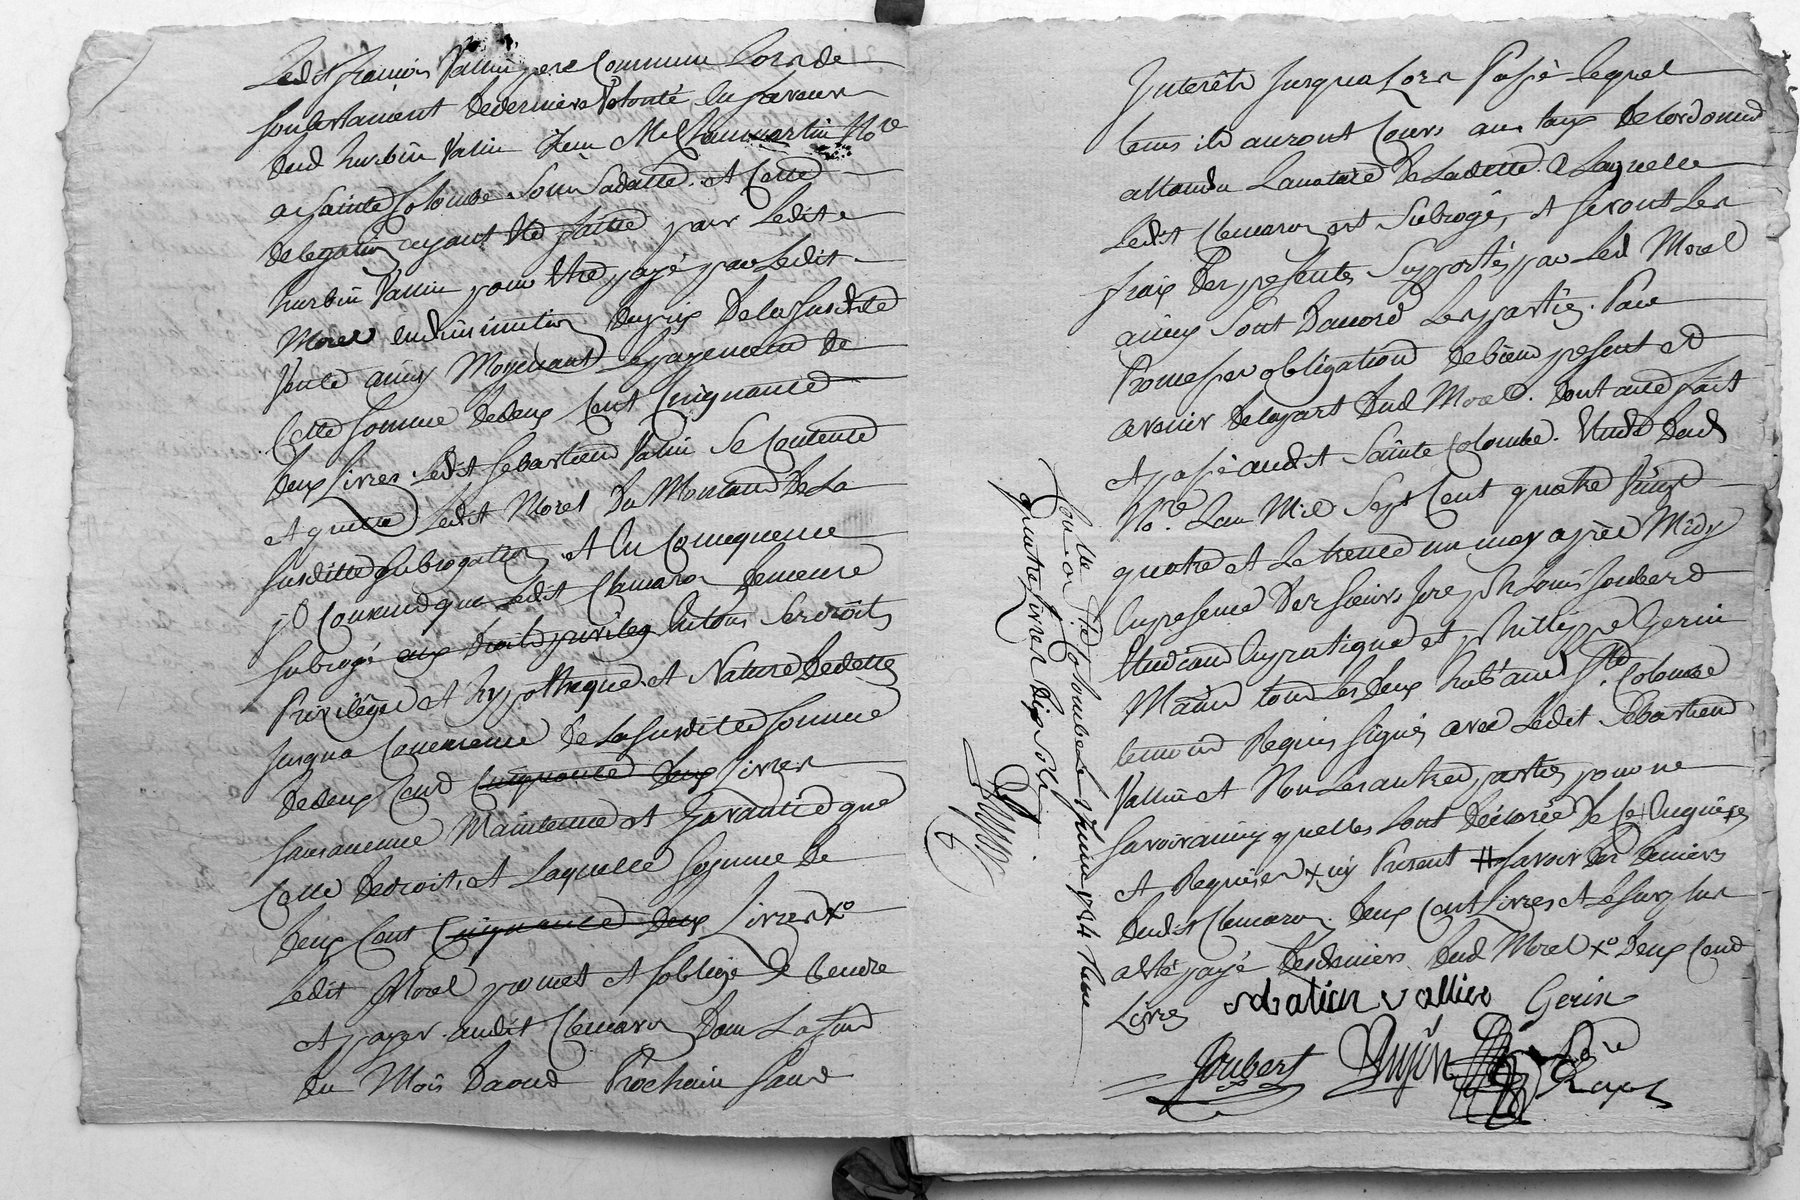 Ledit françois Vallin pere Commun Lors de
son testament de derniere Volonté En faveur
dud hurbin Valin chéz Me Chaumartin No.re
a Sainte Colombe Sous Sadatte. et Cette
delegation ayant Eté faitte par Ledit
hurbin Vallin pour Etre payé par Ledit
Morel En diminution du prix De la Susditte
Vente ainsy Moyenant Le payement de
Cette Somme de deux Cent Cinquante
deux Livres Ledit Sebastien Valin Se Contente
et quitte Ledit Morel Du Montant De La
Susditte Subrogation et En Consequence
Convenu que Ledit Clemaron Demeure
Subrogé aux droits privileg En tous Ses droits
Privilêges et hypotheques et Nature De dette
jusqua Concurrence De La Susditte Somme
De deux Cent Cinquante deux Livres
Sans aucune Maintenue et Garantie que
Celle de droit, et Laquelle Somme De
Deux Cent Cinquante deux Livres xo
Ledit Morel promet et Soblige de Rendre
et payer audit Clemaron Dans La fin
du Mois Daoust Prochain Sans
Interêts Jusqua Lors Passé Lequel
tems ils auront Cours au taux De Lordonnance
attendu La nature De La dette a Laquelle
Ledit Clemaron est Subrogé, et Seront Les
fraix Des presentes Supportés par Led Morel
ainsy Sont Daccord Les parties. Par
Promesses obligations De biens presents et
avenir De La part Dud Morel. Dont acte fait
et passé audit Sainte Colombe. Etude Dud
No.re Lan Mil Sept Cent quatre Vingt
quatre et Le trente un may après Midy
En presence Des Sieurs Joseph Louis Joubert
Etudiant En pratique et Phillippe Gerin
Marin tous Les Deux habitans Ste. Colombe
temoins Requis Signés avec Ledit Sébastien
Vallin et Non Les autres parties pour ne
Savoir ainsy quelles L'ont Déclarée De Ce Enquises
et Requises Savoir Des Deniers
Dudit Clemaron Deux Cent Livres et Le Surplus
a Eté payé Des deniers Dud Morel xo Deux Cent
Livres Sebatien vallin Gerin
Joubert Dujon
Controllé a Ste Colombe Le Juin 1784 Reçu
quatre Livres Dix Sols
Dujon